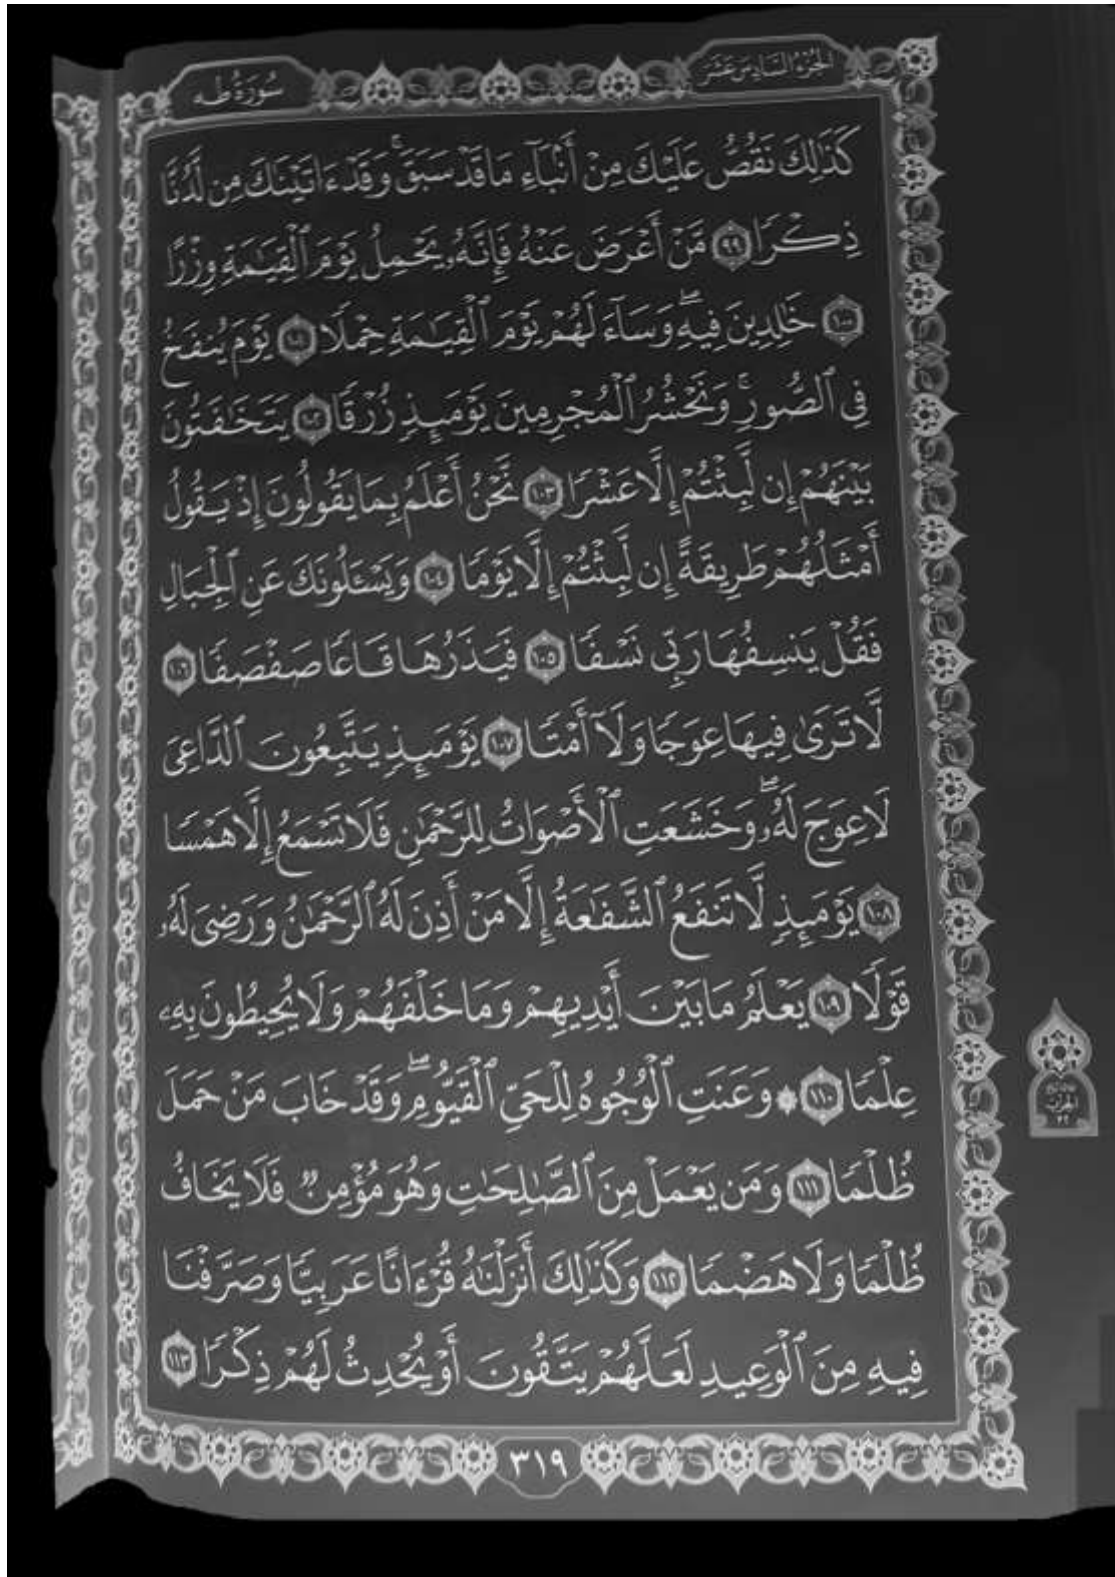 الجزء السادس عشر
سورة طه
كَذَٰلِكَ نَقُصُّ عَلَيْكَ مِنْ أَنۢبَآءِ مَا قَدْ سَبَقَۚ وَقَدْ ءَاتَيْنَٰكَ مِن لَّدُنَّا
ذِكْرًا ٩٩ مَّنْ أَعْرَضَ عَنْهُ فَإِنَّهُۥ يَحْمِلُ يَوْمَ ٱلْقِيَٰمَةِ وِزْرًا
١٠٠ خَٰلِدِينَ فِيهِۖ وَسَآءَ لَهُمْ يَوْمَ ٱلْقِيَٰمَةِ حِمْلًا ١٠١ يَوْمَ يُنفَخُ
فِى ٱلصُّورِۚ وَنَحْشُرُ ٱلْمُجْرِمِينَ يَوْمَئِذٍ زُرْقًا ١٠٢ يَتَخَٰفَتُونَ
بَيْنَهُمْ إِن لَّبِثْتُمْ إِلَّا عَشْرًا ١٠٣ نَّحْنُ أَعْلَمُ بِمَا يَقُولُونَ إِذْ يَقُولُ
أَمْثَلُهُمْ طَرِيقَةً إِن لَّبِثْتُمْ إِلَّا يَوْمًا ١٠٤ وَيَسْـَٔلُونَكَ عَنِ ٱلْجِبَالِ
فَقُلْ يَنسِفُهَا رَبِّى نَسْفًا ١٠٥ فَيَذَرُهَا قَاعًا صَفْصَفًا ١٠٦
لَّا تَرَىٰ فِيهَا عِوَجًا وَلَآ أَمْتًا ١٠٧ يَوْمَئِذٍ يَتَّبِعُونَ ٱلدَّاعِىَ
لَا عِوَجَ لَهُۥۖ وَخَشَعَتِ ٱلْأَصْوَاتُ لِلرَّحْمَٰنِ فَلَا تَسْمَعُ إِلَّا هَمْسًا
١٠٨ يَوْمَئِذٍ لَّا تَنفَعُ ٱلشَّفَٰعَةُ إِلَّا مَنْ أَذِنَ لَهُ ٱلرَّحْمَٰنُ وَرَضِىَ لَهُۥ
قَوْلًا ١٠٩ يَعْلَمُ مَا بَيْنَ أَيْدِيهِمْ وَمَا خَلْفَهُمْ وَلَا يُحِيطُونَ بِهِۦ
عِلْمًا ١١٠ ۞ وَعَنَتِ ٱلْوُجُوهُ لِلْحَىِّ ٱلْقَيُّومِۖ وَقَدْ خَابَ مَنْ حَمَلَ
ظُلْمًا ١١١ وَمَن يَعْمَلْ مِنَ ٱلصَّٰلِحَٰتِ وَهُوَ مُؤْمِنٌ فَلَا يَخَافُ
ظُلْمًا وَلَا هَضْمًا ١١٢ وَكَذَٰلِكَ أَنزَلْنَٰهُ قُرْءَانًا عَرَبِيًّا وَصَرَّفْنَا
فِيهِ مِنَ ٱلْوَعِيدِ لَعَلَّهُمْ يَتَّقُونَ أَوْ يُحْدِثُ لَهُمْ ذِكْرًا ١١٣
٣١٩